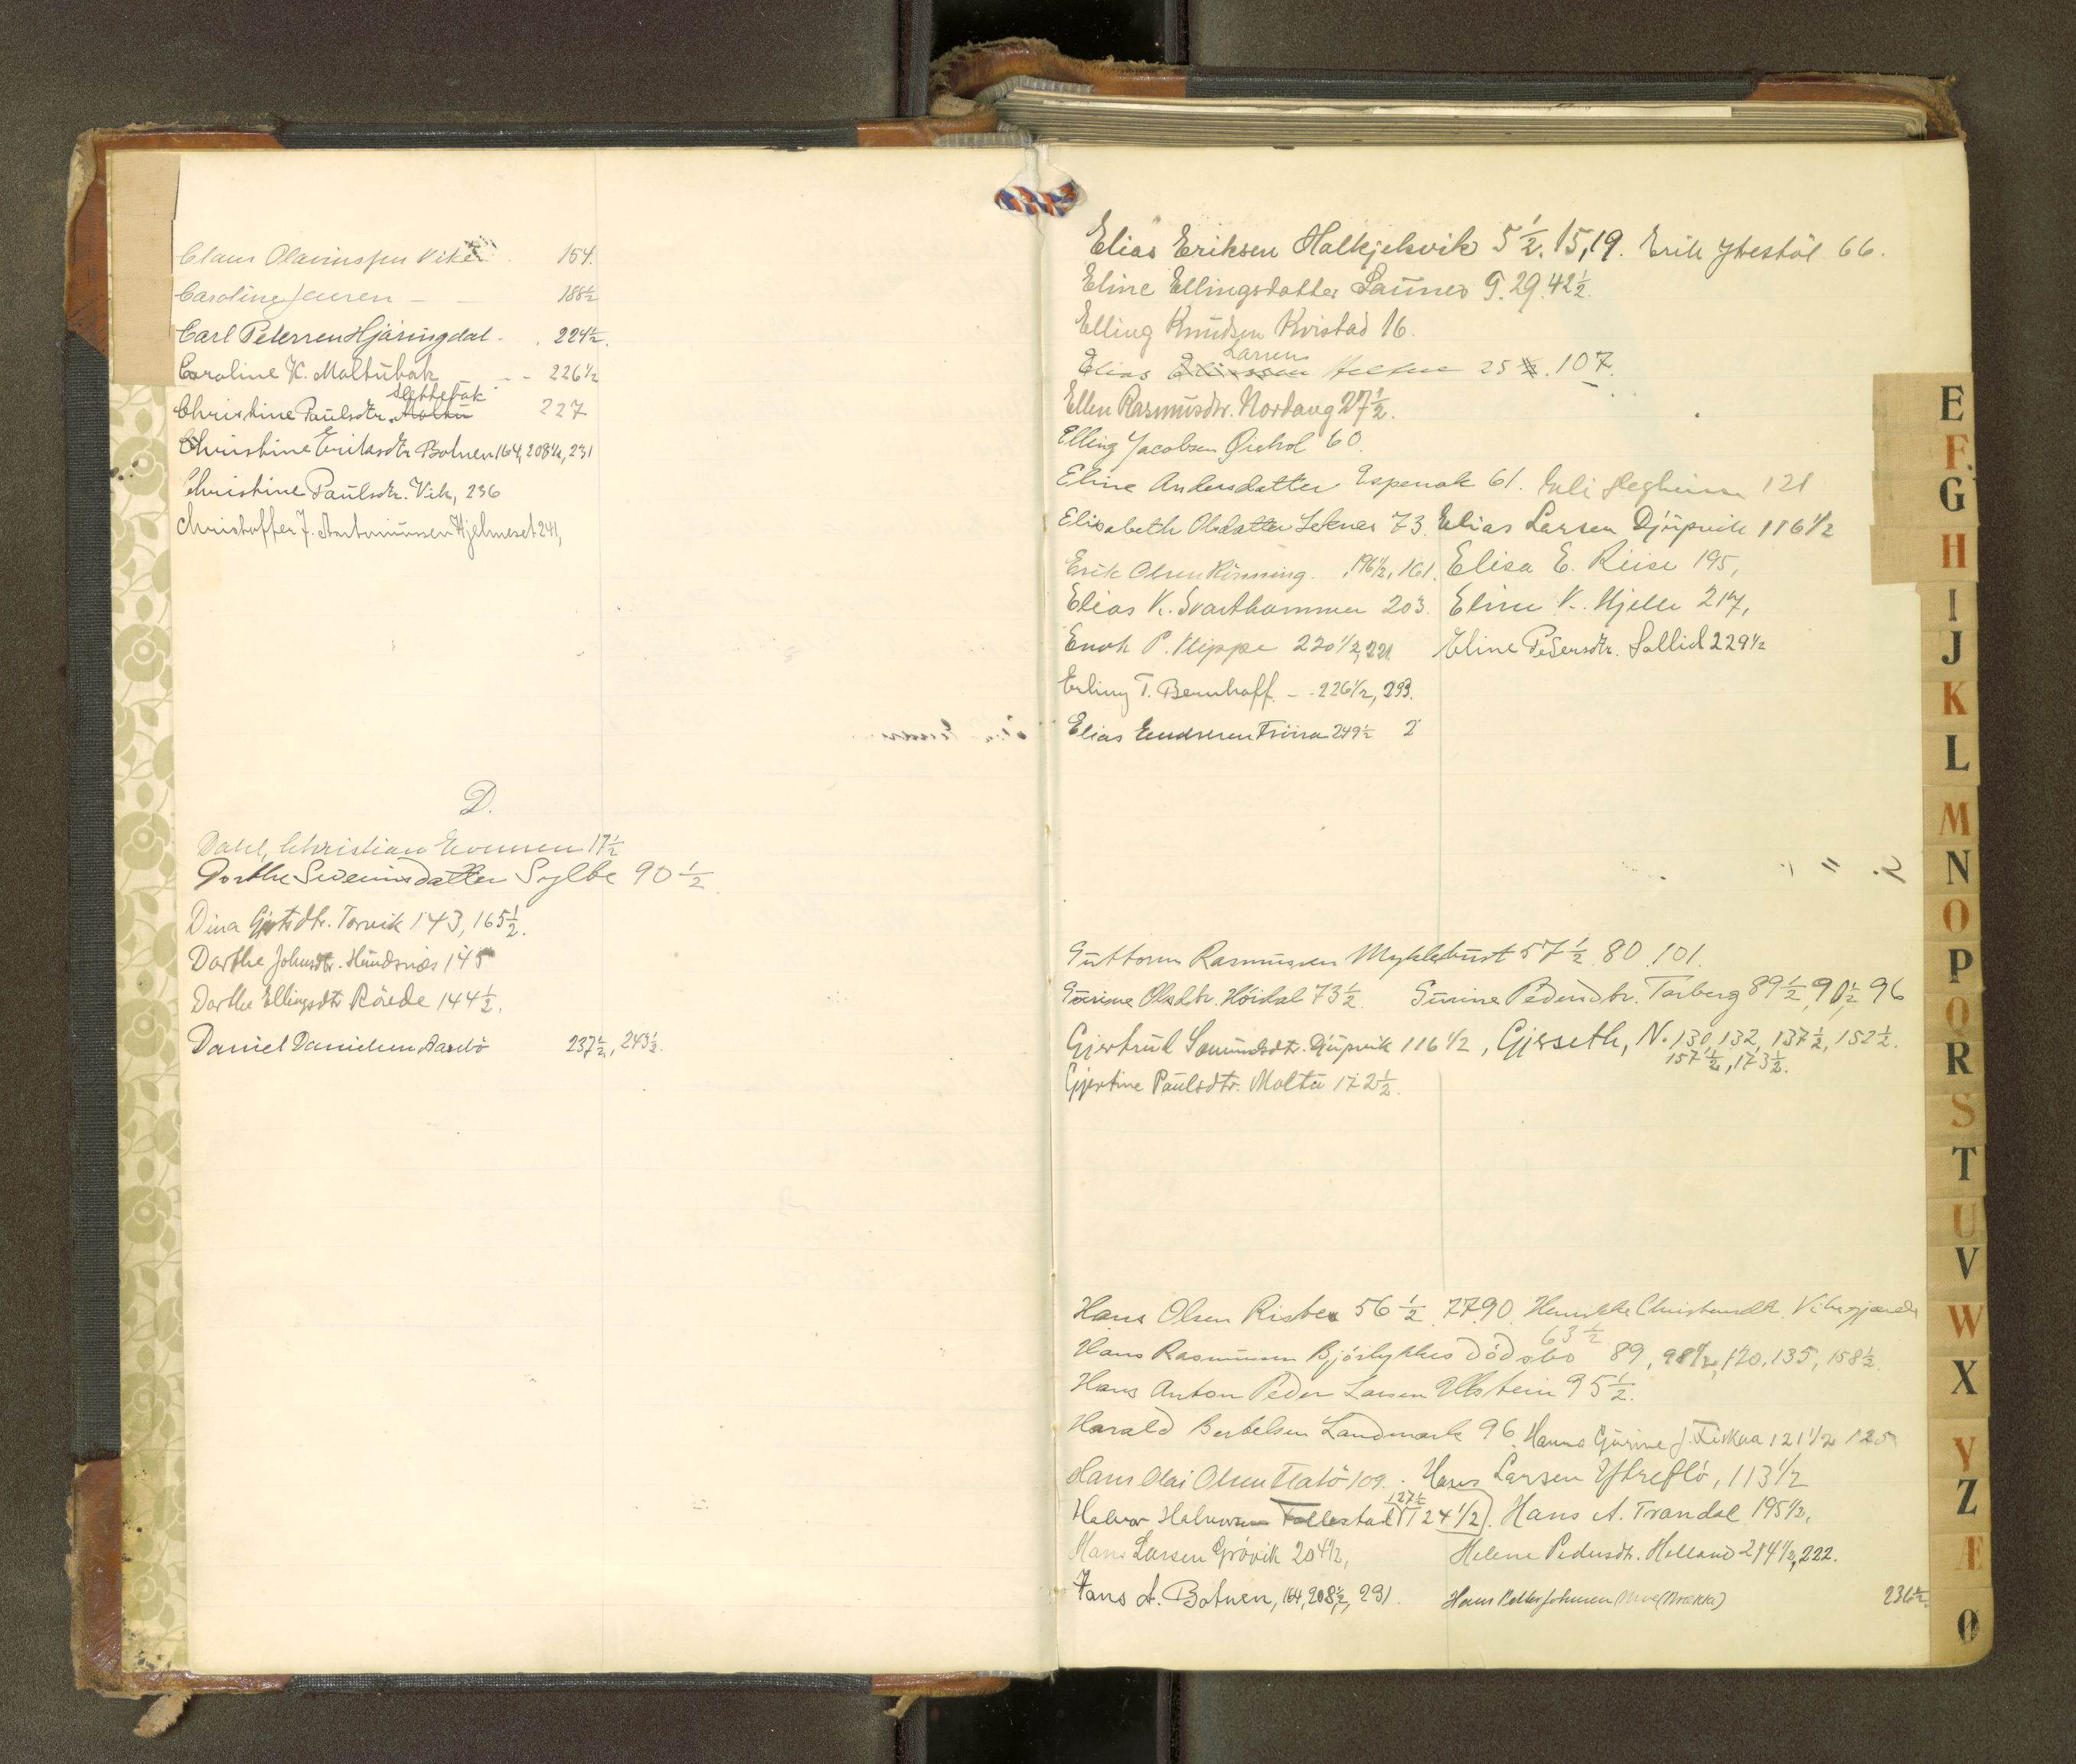 Claus Olavinssen Viken 154.
Caroline Jensen - - 188½
Carl Petersen Hjäringdal - . 224½.
Caroline K. Maltübak - - 226½
Slettebak
Christine Paülsdtr. Maltü 227
Christine Eriksdtr Botnen 164, 208½, 231
Christine Paülsdtr. Vik, 236
Christoffer J. Antoniussen Hjelmeset 241,
D.
Dahl, Christian Evensen 17½
Dorthe Sveinsdatter Sylte 90½.
Dina Gjertsdtr. Torvik 143, 165½.
Dorthe Johnsdtr. Hundsnæs 145
Dorthe Ellingsdtr Räede 144½.
Daniel Danielsen, Aasebö 237½, 243½.
Elias Eriksen Halkjelsvik 5½. 15, 19. Erik Ytrestöl 66.
Eline Ellingsdatter Saünes 9. 29. 42½.
Elling Knüdsen Kvistad 16.
Larsen
Elias Eliassen 25 ½. 107.
Ellen Rasmüsdtr. Nordang 27½.
Elling Jacobsen Öichol 60.
Eline Andersdatter Espenak 61. 121
Elisabeth Olsdatter Seknes 73. Elias Larsen Djüpvik 116½
Erik Olsen Rönning. , 196½, 161. Elisa E. Reise 195,
Elias K. Svarthammer 203. Eline K. Hjelle 217,
Enok P. Klippe 220½, 221 Eline Pedersdtr. Sollid 229½
Erling T. Bernhoff - . 226½, 293.
Elias Endresen Fröisa 249½ 2
Guttorm Rasmussen Myklebust 57½. 80. 101.
Gurine Olsdtr. Höidal 73½. Gurine Pedersdtr. Torberg 89½, 90½ 96
Gjertrud Samundsdtr. Djüpvik 116½, Gjerseth, N. 130, 132, 137½, 152½.
157½, 173½.
Gjertine Paülsdtr. Maltü 172½.
Hans Olsen Risber 56½. 77. 90. Henrikke Christensdtr. Vikegjærde
63½
Hans Rasmussen Bjórlykkes Dódsbo 89, 98½, 120, 135, 158½.
Hans Anton Peder Larsen Ulstein 95½.
Harald Bertelsen Landmark 96. Hanna Gurine J. Fiskaa 121½ 125
Hans Olai Olsen Flatö 109. Hans Larsen Yttreflö, 113½
127½
Halvor Halvorsen Follestad 124½). Hans A. Trandal 195½,
Hans Larsen Grövik 204½, Helene Pedersdtr. Helland 214½, 222.
Hans A. Botnen, 164, 208½, 231. Hans Petter Johnsen Moe (Brekka) 236½.
E
F
G
H
I
J
K
L
M
N
O
P
Q
R
S
T
U
V
W
X
Y
Z
Æ
Ø